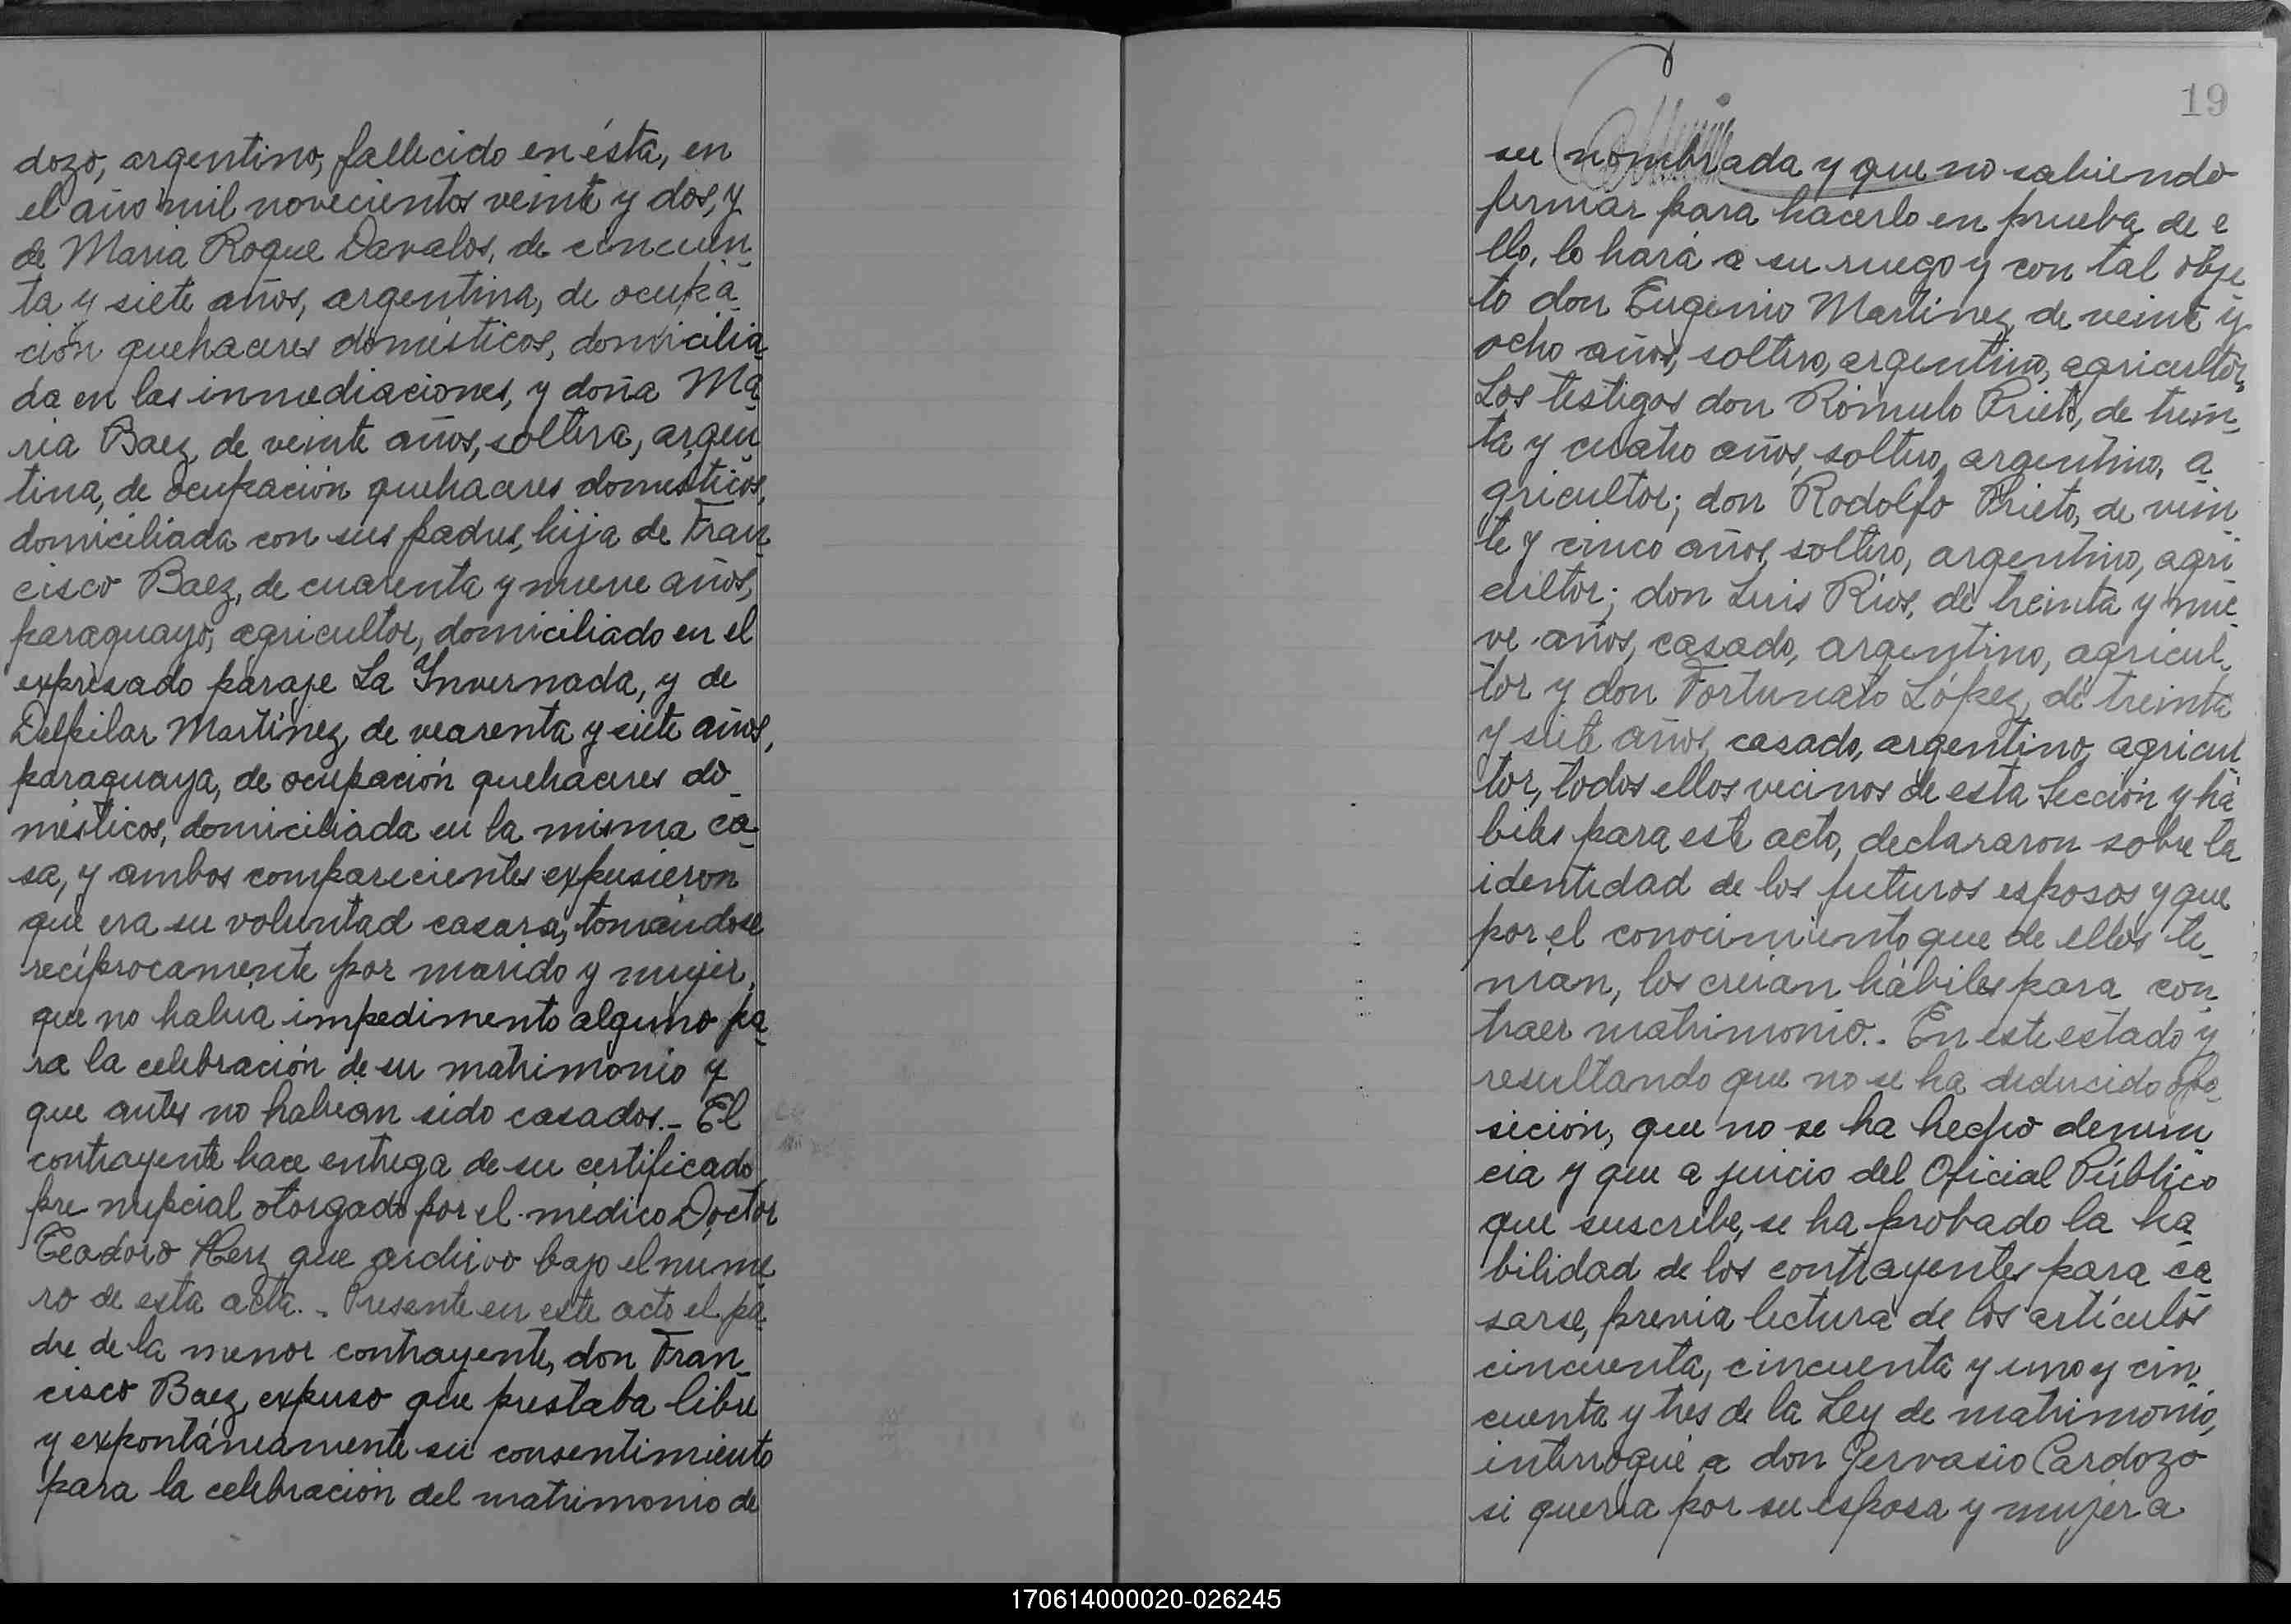 dozo, argentino, fallecido en ésta, en
el año mil novecientos veinte y dos, y
de Maria Roque Davalos, de cincuen_
ta y siete años, argentina, de ocupa_
ción quehaceres domésticos, domicilia_
da en las inmediaciones, y doña Ma_
ria Baez, de veinte años, soltera, argen_
tina, de ocupación quehaceres domésticos,
domiciliada con sus padres, hija de Fran_
cisco Baez, de cuarenta y nueve años,
paraguayo, agricultor, domiciliado en el
expresado paraje La Invernada, y de
Delpilar Martínez, de cuarenta y siete años,
paraguaya, de ocupación quehaceres do_
mésticos, domiciliada en la misma ca_
sa, y ambos comparecientes expusieron
que era su voluntad casarse, tomándose
recíprocamente por marido y mujer,
que no había impedimento alguno pa_
ra la celebración de su matrimonio y
que antes no habían sido casados._ El
contrayente hace entrega de su certificado
pre nupcial otorgado por el médico Doctor
Teodoro Herz que archivo bajo el núme_
ro de esta acta._ Presente en este acto el pa_
dre de la menor contrayente, don Fran_
cisco Baez, expuso que prestaba libre
y expontáneamente su consentimiento
para la celebración del matrimonio de
19
su nombrada y que no sabiendo
firmar para hacerlo en prueba de e
llo, lo hará a su ruego y con tal obje_
to don Eugenio Martinez, de veinte y
ocho años, soltero, argentino, agricultor.
Los testigos don Rómulo Prieto, de trein_
ta y cuatro años, soltero, argentino, a_
gricultor; don Rodolfo Prieto, de vein_
te y cinco años, soltero, argentino, agri_
cultor; don Luis Ríos, de treinta y nue_
ve años, casado, argentino, agricul_
tor y don Fortunato López, de treinta
y siete años, casado, argentino, agricul_
tor, todos ellos vecinos de esta Sección y há_
biles para este acto, declararon sobre la
identidad de los futuros esposos y que
por el conocimiento que de ellos te_
nían, los creían hábiles para con_
traer matrimonio.- En este estado y
resultando que no se ha deducido opo_
sición, que no se ha hecho denun_
cia y que a juicio del Oficial Público
que suscribe, se ha probado la ha_
bilidad de los contrayentes para ca_
sarse, previa lectura de los artículos
cincuenta, cincuenta y uno y cin_
cuenta y tres de la Ley de matrimonio,
interrogué a don Gervasio Cardozo
si quería por su esposa y mujer a
170614000020-026245